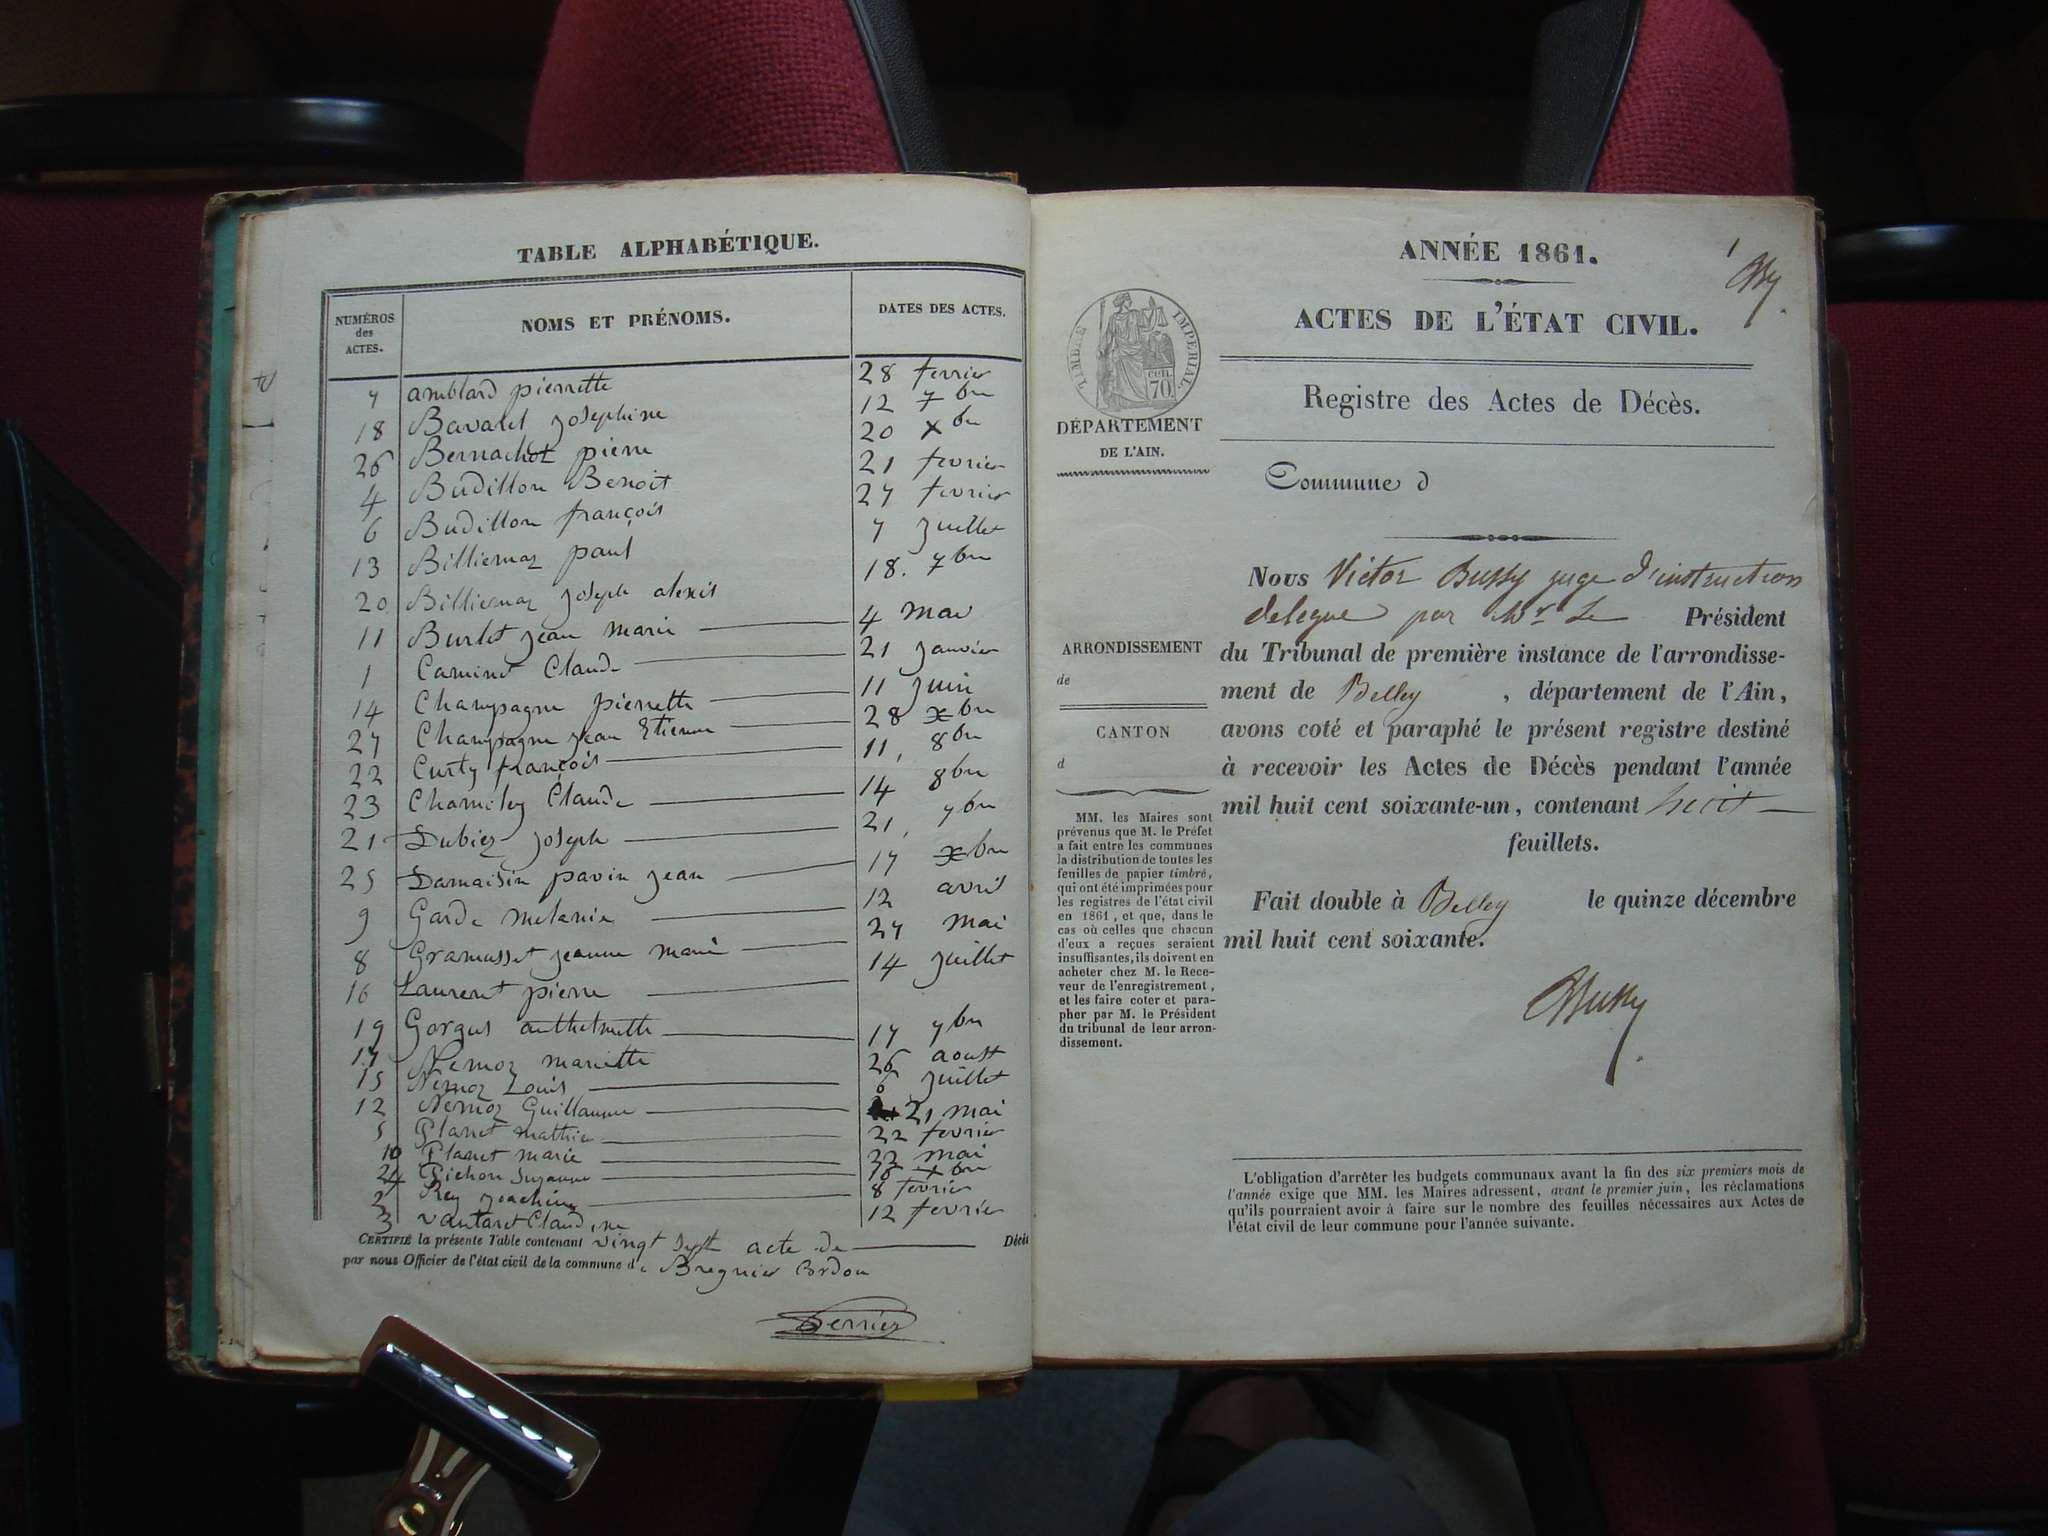 TABLE ALPHABÉTIQUE.
NUMÉROS des ACTES. NOMS ET PRÉNOMS. DATES DES ACTES.
7 amblard pierrette 28 fevrier
18 Bavalet Josephine 12 7bre
26 Bernachot pierre 20 Xbre
4 Budillon Benoit 21 fevrier
6 Budillon françois 27 fevrier
13 Billiemaz paul 7 Juillet
20 Billiemaz Joseph alexis 18. 7bre
11 Burlet Jean marie 4 mai
1 Caminet Claude 21 Janvier
14 Champagne pierrette 11 Juin
27 Champagne Jean Etienne 28 Xbre
22 Curty françois 11, 8bre
23 Claude 14 8bre
21 Dubiez Joseph 21, 7bre
25 Damaisin pavin Jean 17 Xbre
9 Garde melanie 12 avril
8 Gramusset Jeanne marie 27 mai
16 Laurent pierre 14 Juillet
19 Gorgus anthelmette 17 7bre
17 Nemoz mariette 26 aoust
15 Nemoz Louis 8 Juillet
12 Nemoz Guillaume 21 mai
5 Planet mathieu 22 fevrier
10 Planet marie 22 mai
24 Pichon Suzanne 18 Xbre
2 Rey Joachim 8 fevrier
3 Vantaret Claudine 12 fevrier
CERTIFIÉ la présente Table contenant vingt sept acte de Décès
par nous Officier de l'état civil de la commune de Bregnier Cordon
Perrier
1
ANNÉE 1861.
ACTES DE L'ÉTAT CIVIL.
TIMBRE IMPÉRIAL
70 cen.
Registre des Actes de Décès.
DÉPARTEMENT
DE L'AIN.
Commune d
Nous Victor Bussy juge d'instruction
delegue par Mr Le Président
du Tribunal de première instance de l'arrondisse-
ment de Belley , département de l'Ain,
avons coté et paraphé le présent registre destiné
à recevoir les Actes de Décès pendant l'année
mil huit cent soixante-un, contenant huit
feuillets.
Fait double à Belley le quinze décembre
mil huit cent soixante.
Bussy
ARRONDISSEMENT
de
CANTON
d
MM. les Maires sont
prévenus que M. le Préfet
a fait entre les communes
la distribution de toutes les
feuilles de papier timbré,
qui ont été imprimées pour
les registres de l'état civil
en 1861, et que, dans le
cas où celles que chacun
d'eux a reçues seraient
insuffisantes, ils doivent en
acheter chez M. le Rece-
veur de l'enregistrement,
et les faire coter et para-
pher par M. le Président
du tribunal de leur arron-
dissement.
L'obligation d'arrêter les budgets communaux avant la fin des six premiers mois de
l'année exige que MM. les Maires adressent, avant le premier juin, les réclamations
qu'ils pourraient avoir à faire sur le nombre des feuilles nécessaires aux Actes de
l'état civil de leur commune pour l'année suivante.